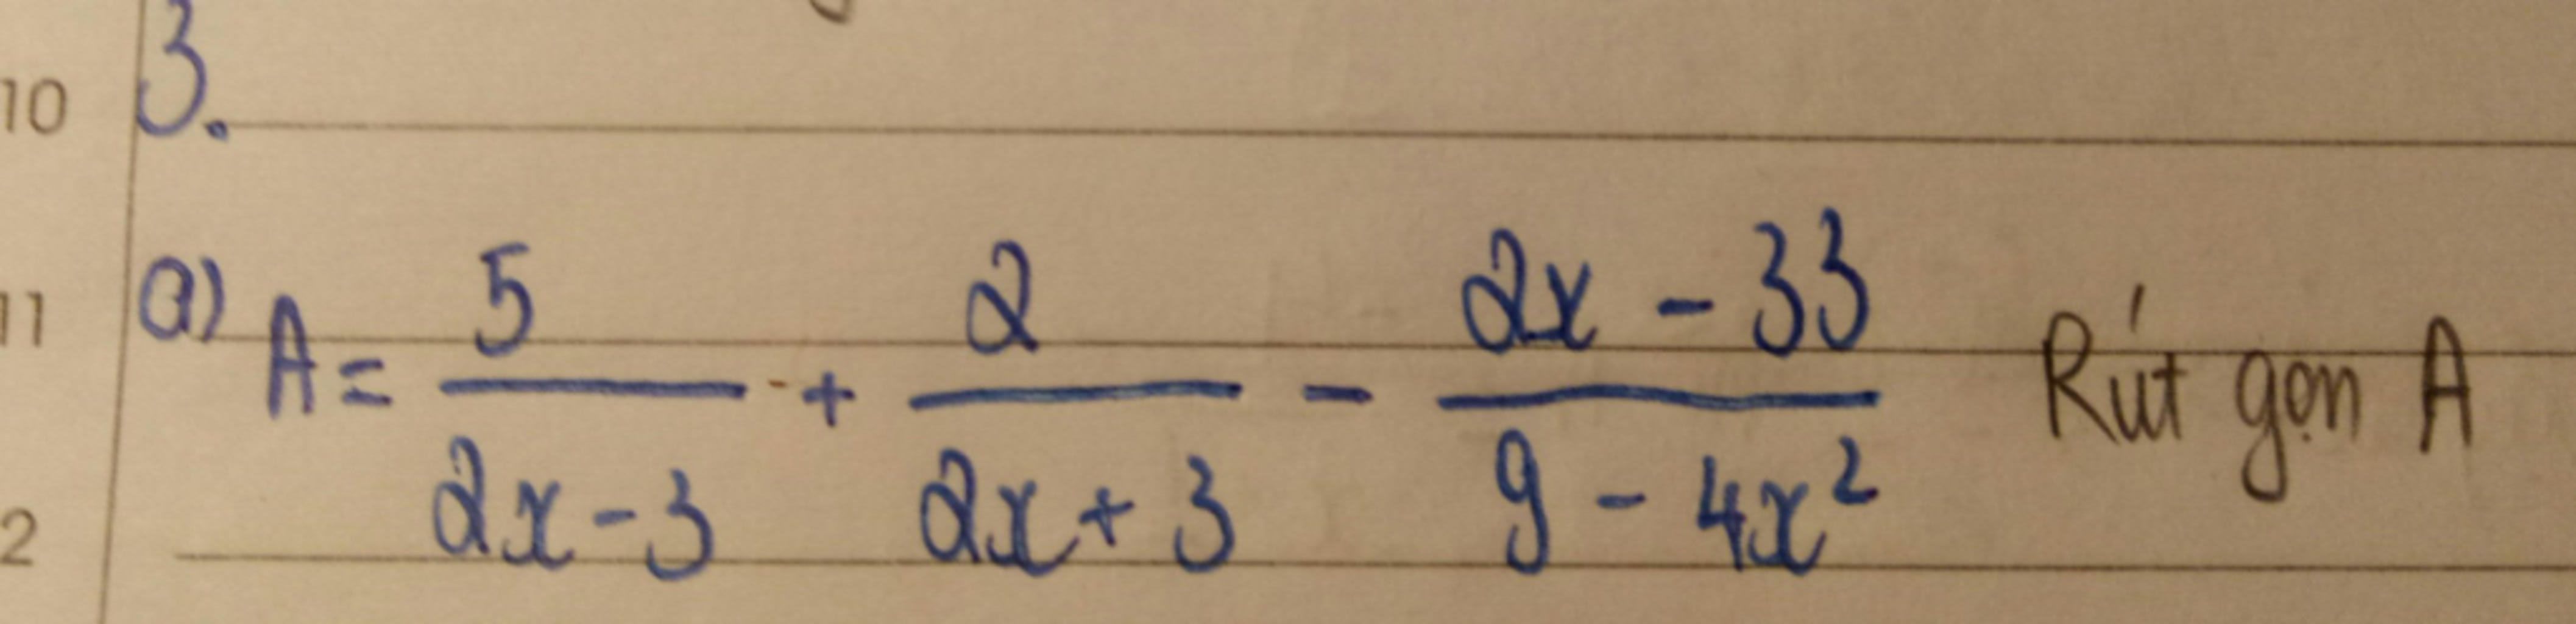 10 3.
11 a) A = \frac{5}{2x-3} + \frac{2}{2x+3} - \frac{2x-33}{9-4x^2} Rút gọn A
2